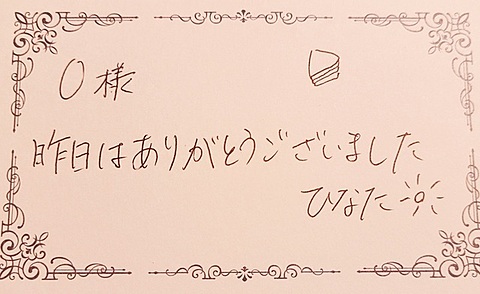 O様
昨日はありがとうございました
ひなた